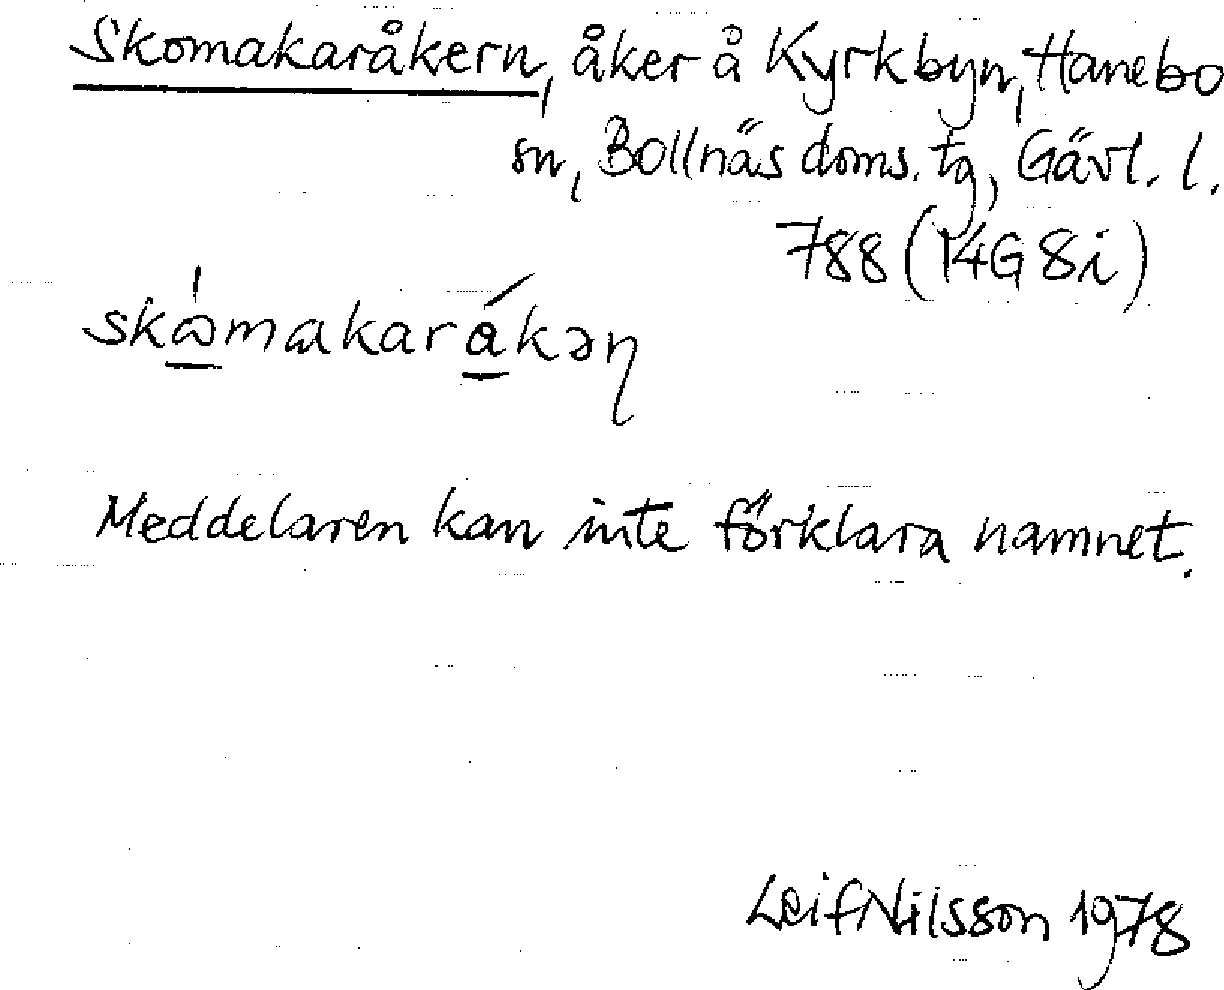 Skomakaråkern, åker å Kyrkbyn, Hanebo
sn, Bollnäs doms. tg, Gävl. l.
788 (14G 8i)
Meddelaren kan inte förklara namnet.
Leif Nilsson 1978